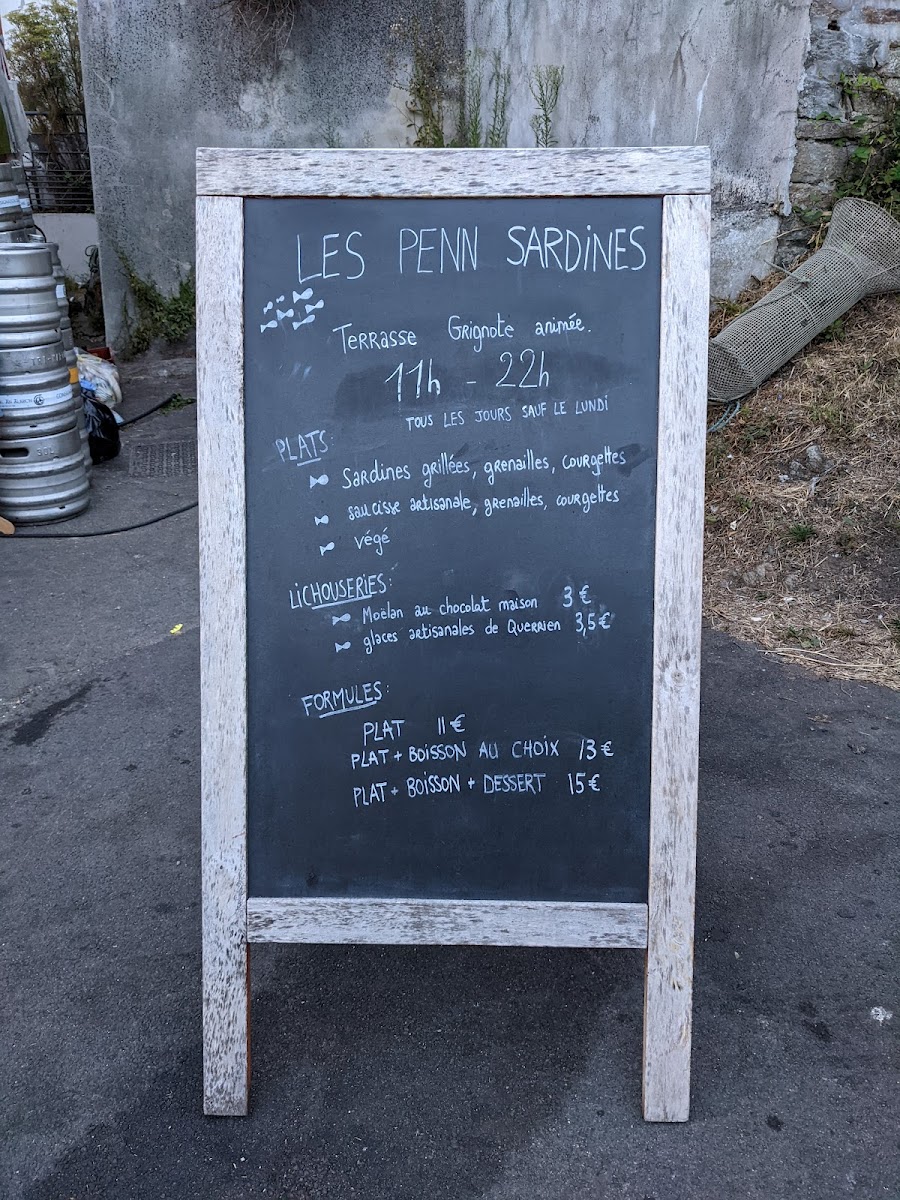 LES PENN SARDINES
Terrasse Grignote animée.
11h - 22h
TOUS LES JOURS SAUF LE LUNDI
PLATS:
Sardines grillées, grenailles, courgettes
saucisse artisanale, grenailles, courgettes
végé
LICHOUSERIES:
Moëlan au chocolat maison 3€
glaces artisanales de Querrien 3,5€
FORMULES:
PLAT 11€
PLAT + BOISSON AU CHOIX 13€
PLAT + BOISSON + DESSERT 15€